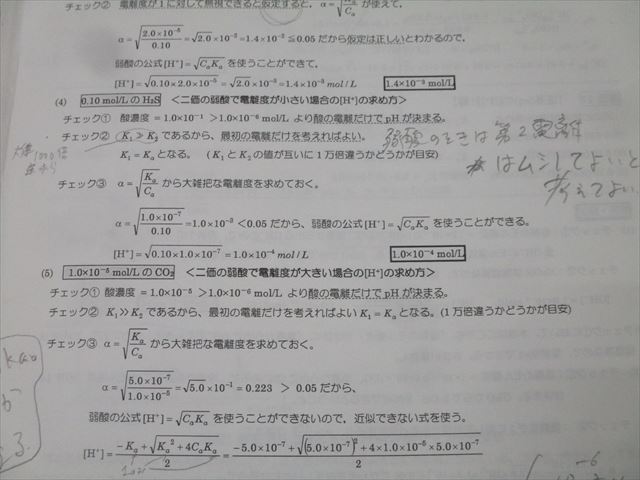 チェック② 電離度が1に対して無視できると仮定すると，α=√(Ka/Ca) が使えて，
α=√(2.0×10⁻⁵/0.10)=√2.0×10⁻²=1.4×10⁻² ≦0.05 だから仮定は正しいとわかるので，
弱酸の公式[H⁺]=√CaKa を使うことができて，
[H⁺]=√0.10×2.0×10⁻⁵=√2.0×10⁻³=1.4×10⁻³ mol/L 1.4×10⁻³ mol/L
(4) 0.10 mol/L の H₂S ＜二価の弱酸で電離度が小さい場合の[H⁺]の求め方＞
チェック① 酸濃度＝1.0×10⁻¹ ＞1.0×10⁻⁶ mol/L より酸の電離だけで pH が決まる。
チェック② K₁≫K₂ であるから、最初の電離だけを考えればよい。
弱酸のときは第2電離
K₁=Ka となる。（K₁ と K₂ の値が互いに1万倍違うかどうかが目安）
はムシしてよいと
考えてよい
チェック③ α=√(Ka/Ca) から大雑把な電離度を求めておく。
α=√(1.0×10⁻⁷/0.10)=1.0×10⁻³ ＜0.05 だから、弱酸の公式[H⁺]=√CaKa を使うことができる。
[H⁺]=√0.10×1.0×10⁻⁷=1.0×10⁻⁴ mol/L 1.0×10⁻⁴ mol/L
(5) 1.0×10⁻⁵ mol/L の CO₂ ＜二価の弱酸で電離度が大きい場合の[H⁺]の求め方＞
チェック① 酸濃度＝1.0×10⁻⁵ ＞1.0×10⁻⁶ mol/L より酸の電離だけで pH が決まる。
チェック② K₁≫K₂ であるから、最初の電離だけを考えればよい K₁=Ka となる。（1万倍違うかどうかが目安）
チェック③ α=√(Ka/Ca) から大雑把な電離度を求めておく。
α=√(5.0×10⁻⁷/1.0×10⁻⁵)=√5.0×10⁻¹=0.223 ＞ 0.05 だから、
弱酸の公式[H⁺]=√CaKa を使うことができないので，近似できない式を使う。
[H⁺]=(-Ka+√(Ka²+4CaKa))/2=(-5.0×10⁻⁷+√((5.0×10⁻⁷)²+4×1.0×10⁻⁵×5.0×10⁻⁷))/2